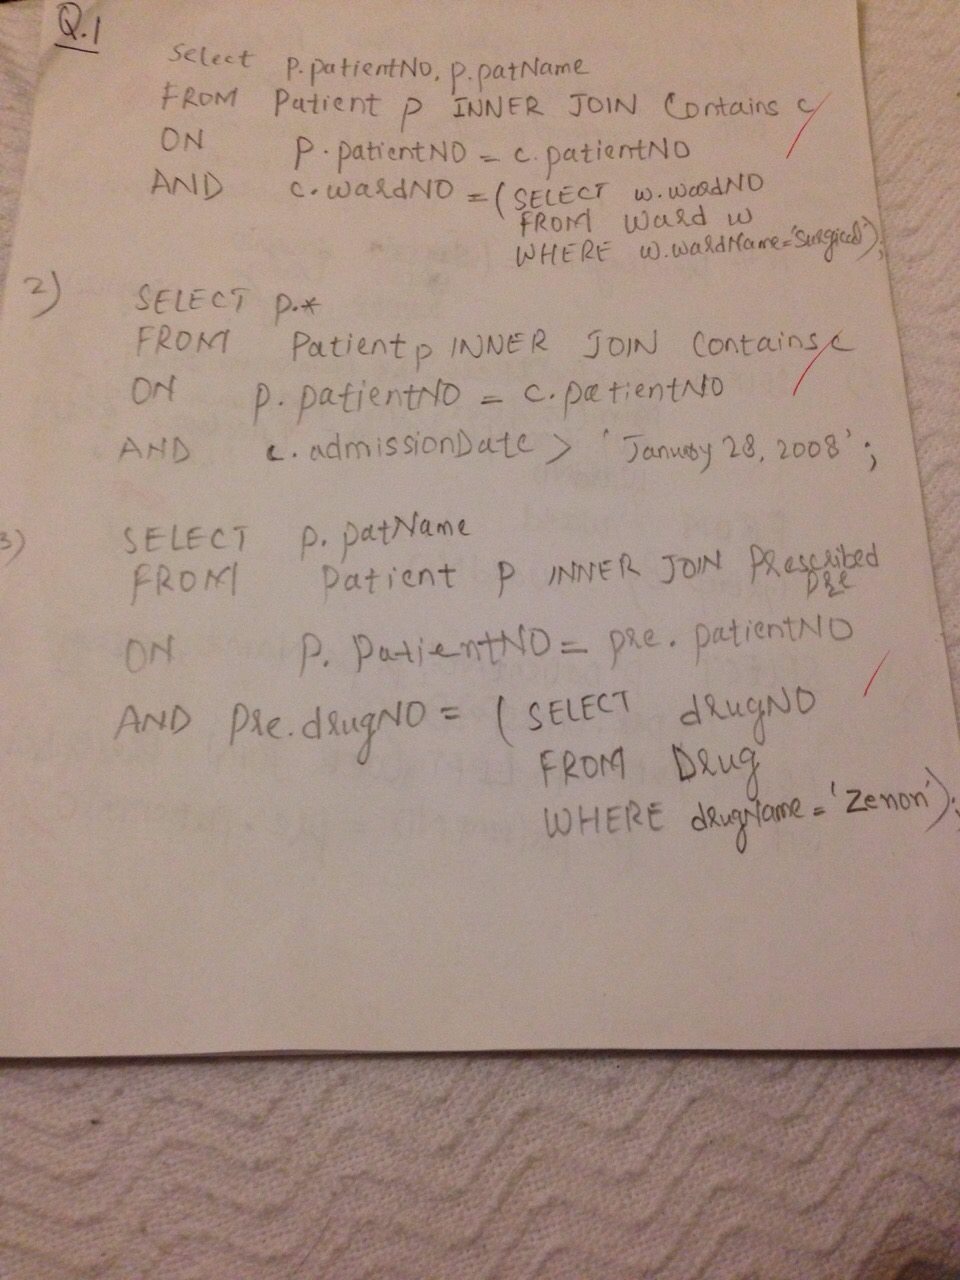 Q.1
Select p.patientNo, p.patName
FROM Patient p INNER JOIN Contains c
ON p.patientNO = c.patientNO
AND c.wardNO = (SELECT w.wardNO
FROM Ward w
WHERE w.wardName='Surgical');
2)
SELECT p.*
FROM Patient p INNER JOIN Contains c
ON p.patientNO = c.patientNO
AND c.admissionDate > 'January 28, 2008';
3)
SELECT p.patName
FROM Patient p INNER JOIN Prescribed
pre
ON p.patientNO = pre.patientNO
AND pre.drugNO = (SELECT drugNO
FROM Drug
WHERE drugName = 'Zenon');